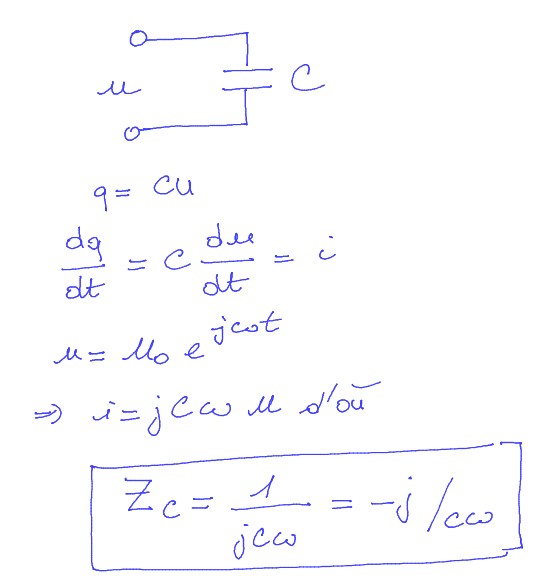 u
C
q = Cu
dq/dt = C du/dt = i
u = u₀ e^{jωt}
⇒ i = jCω u d'où
Z_C = 1/jCω = -j/Cω